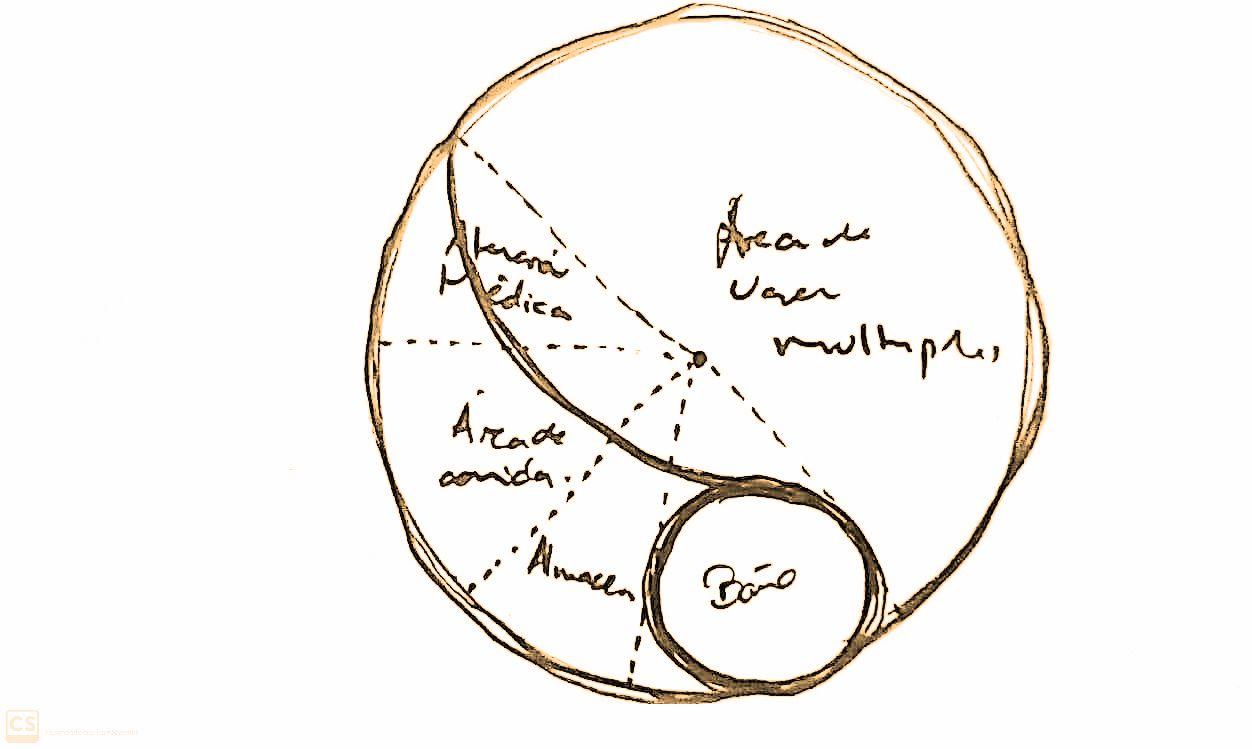 Área de
usos
múltiples
Atención
Médica
Área de
comida
Almacén
Baño
CS